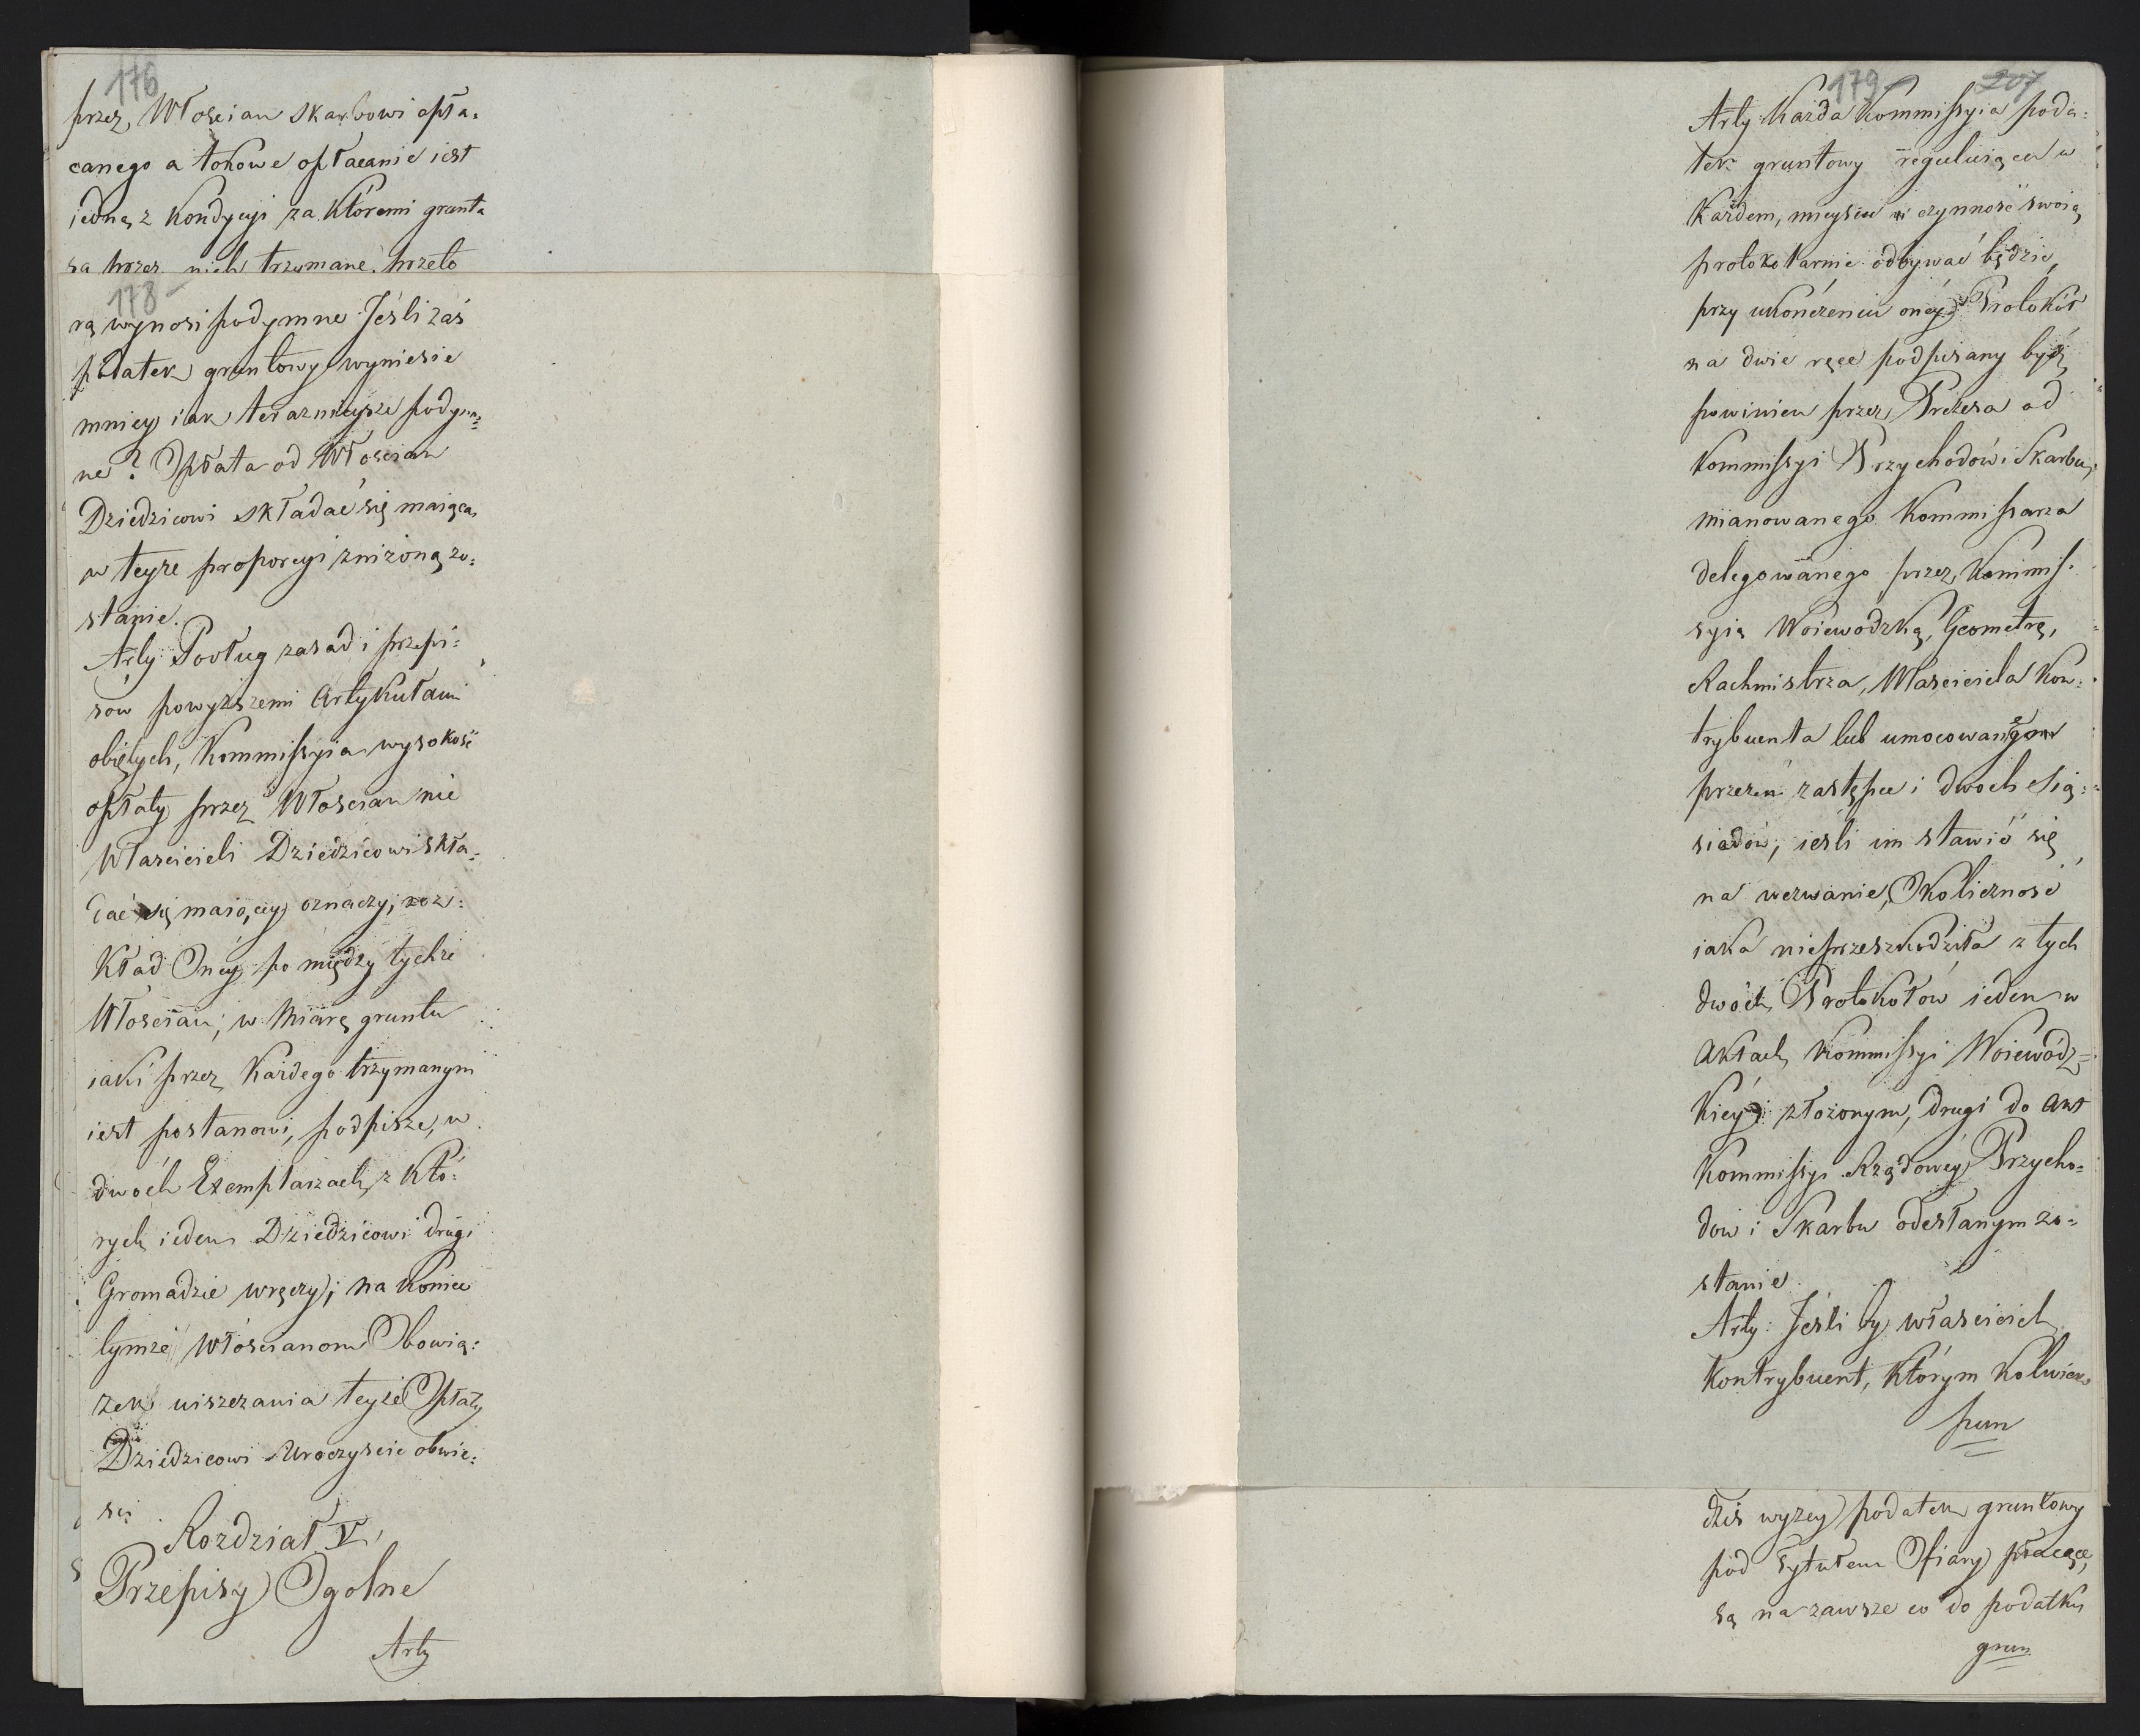 176
przez Włoscian Skarbowi opła=
canego a tokowe opłacanie iest
iedną z Kondycyi za któremi grunta
są przez nich trzymane. przeto
178
rą wynosi podymne. Jeśli zaś
podatek gruntowy wyniesie
mniey iak teraznieysze podym=
ne? Opłata od Włoscian
Dziedzicowi składać się maiąca,
w teyże proporcyi zniżoną zo=
stanie.
Arty: Podług zasad i przepi=
sów powyższemi Artykułami
obiętych, Kommissyia wysokość
opłaty przez Włoscian nie
Własicieli Dziedzicowi skła=
dać się maiącey oznaczy; roz=
kład Oney po między tychże
Włoscian; w miarę gruntu
iaki przez każdego trzymanym
iest postanowi, podpisze, w
dwóch Exemplarzach z któ=
rych ieden Dziedzicowi drugi
Gromadzie wręczy; na koniec
tymże Włościanom Obowią=
zek uiszczania teyże Opłaty
Dziedzicowi uroczyscie obwie=
sci
Rozdział V.
Przepisy Ogolne
Arty
179 207
Arty: Każda Kommissyia poda=
tek gruntowy reguluiąca w
Każdem, mieyscu czynność swoią
protokolarnie odbywać będzie,
przy ukończeniu oney Protokół
na dwie ręce podpisany być
powinien przez Prezesa od
Kommissyi Przychodów i Skarbu,
mianowanego Kommissarza
delegowanego przez Kommis=
syią Woiewódzką, Geometrę,
Rachmistrza, Właściciela Kon=
trybuenta lub umocowanego
przezeń zastępce i dwoch Są=
siadów, iesli im stawić się
na wezwanie, Okoliczność
iaka nieprzeszkodziła z tych
dwóch Protokołów ieden w
Aktach Kommissyi Woiewódz=
kiey złożonym, drugi do Akt
Kommissyi Rządowey Przycho=
dów i Skarbu odesłanym zo=
stanie.
Arty: Jesli by własciciel
Kontrybuent, którym kolwiek
pun
dziś wyżey podatek gruntowy
pod Tytułem Ofiary płacące,
są na zawsze co do podatku
grun